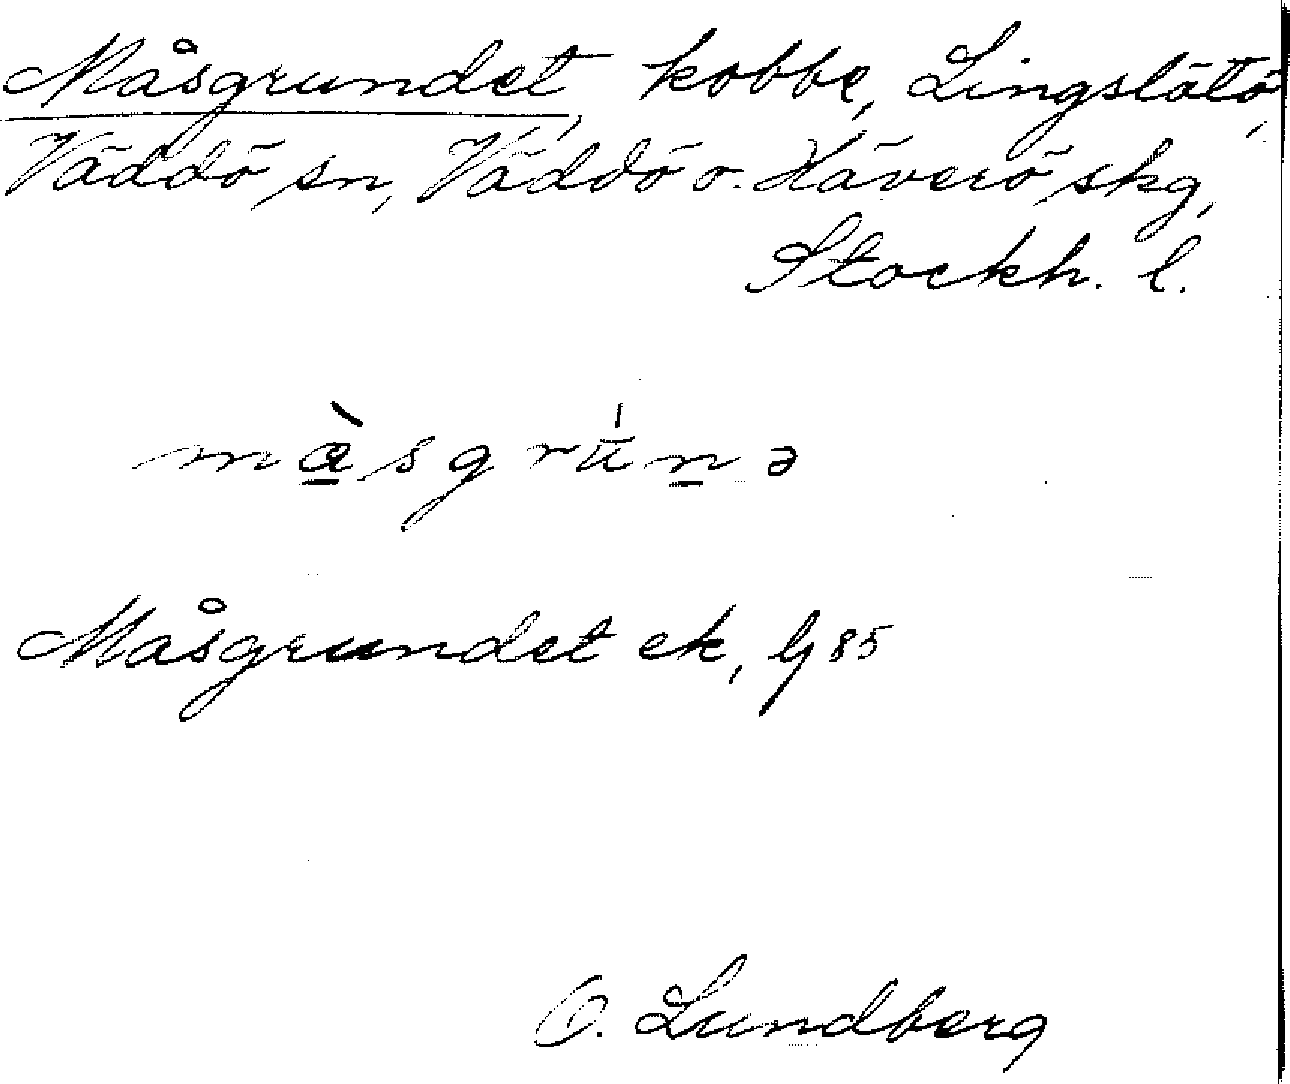 Måsgrundet, kobbe, Lingslätö,
Väddö sn, Väddö o. Häverö skg,
Stockh. l.
Måsgrundet ek, bg 85
O. Lundberg